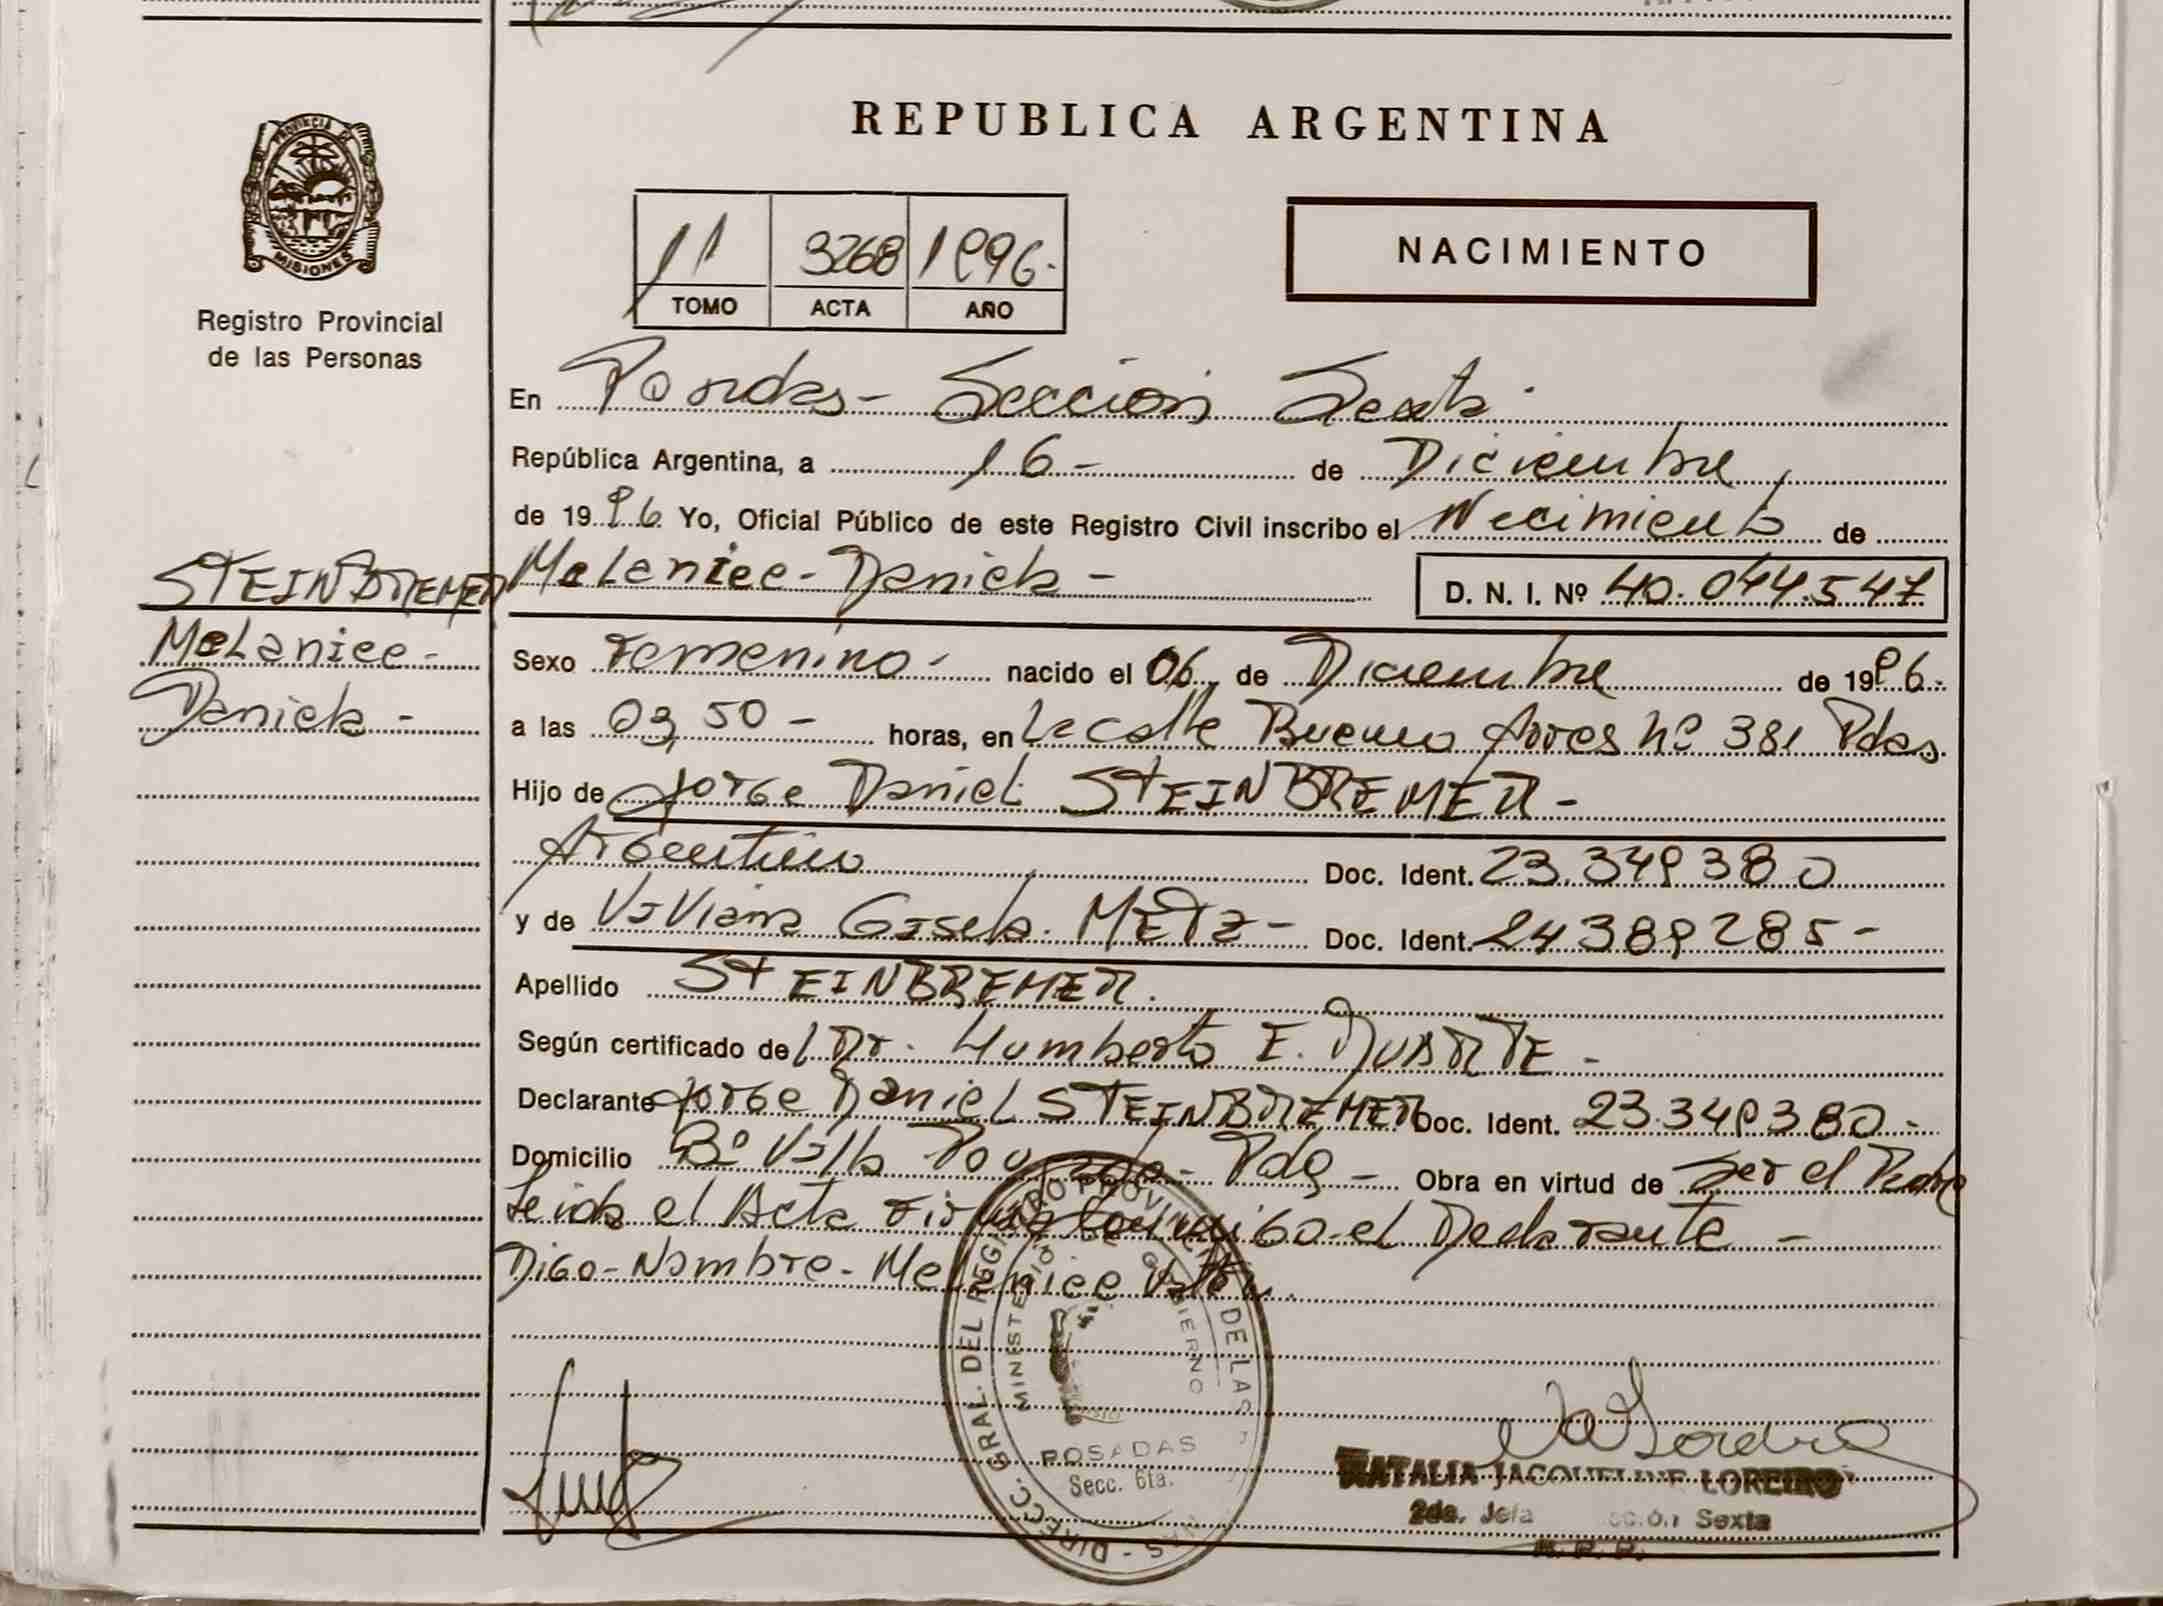 REPUBLICA ARGENTINA
PROVINCIA DE
MISIONES
Registro Provincial
de las Personas
11 3268 1996.
TOMO ACTA AÑO
NACIMIENTO
En Posadas - Sección Sexta.
República Argentina, a 16 - de Diciembre
de 1996 Yo, Oficial Público de este Registro Civil inscribo el Nacimiento de
STEINBREMER
Melaniee - Daniela -
Melaniee - Daniela - D. N. I. Nº 40.044.547
Sexo Femenino - nacido el 06 de Diciembre de 1996.
a las 03,50 - horas, en la calle Buenos Aires nº 381 Pdas
Hijo de Jorge Daniel STEINBREMER -
Argentino Doc. Ident. 23.349380
y de Viviana Gisela METZ - Doc. Ident. 24389285 -
Apellido STEINBREMER.
Según certificado del Dr. Humberto E. DUARTE -
Declarante Jorge Daniel STEINBREMER Doc. Ident. 23.349380 -
Domicilio Bº Villa - Pds - Obra en virtud de ser el Padre
Leida el Acta conmigo el Declarante -
Digo - Nombre - Melaniee
DIRECC. GRAL. DEL REGISTRO PROVINCIAL DE LAS
MINISTERIO DE GOBIERNO
POSADAS
Secc. 6ta.
NATALIA JACQUELINE LOREIRO
2da. Jefa Sección Sexta
R. P. P.